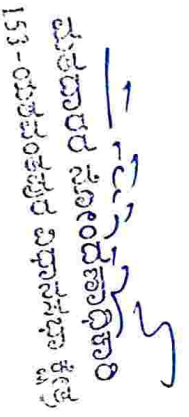 ಮತದಾರರ ನೋಂದಣಾಧಿಕಾರಿ
153-ಯಶವಂತಪುರ ವಿಧಾನಸಭಾ ಕ್ಷೇತ್ರ